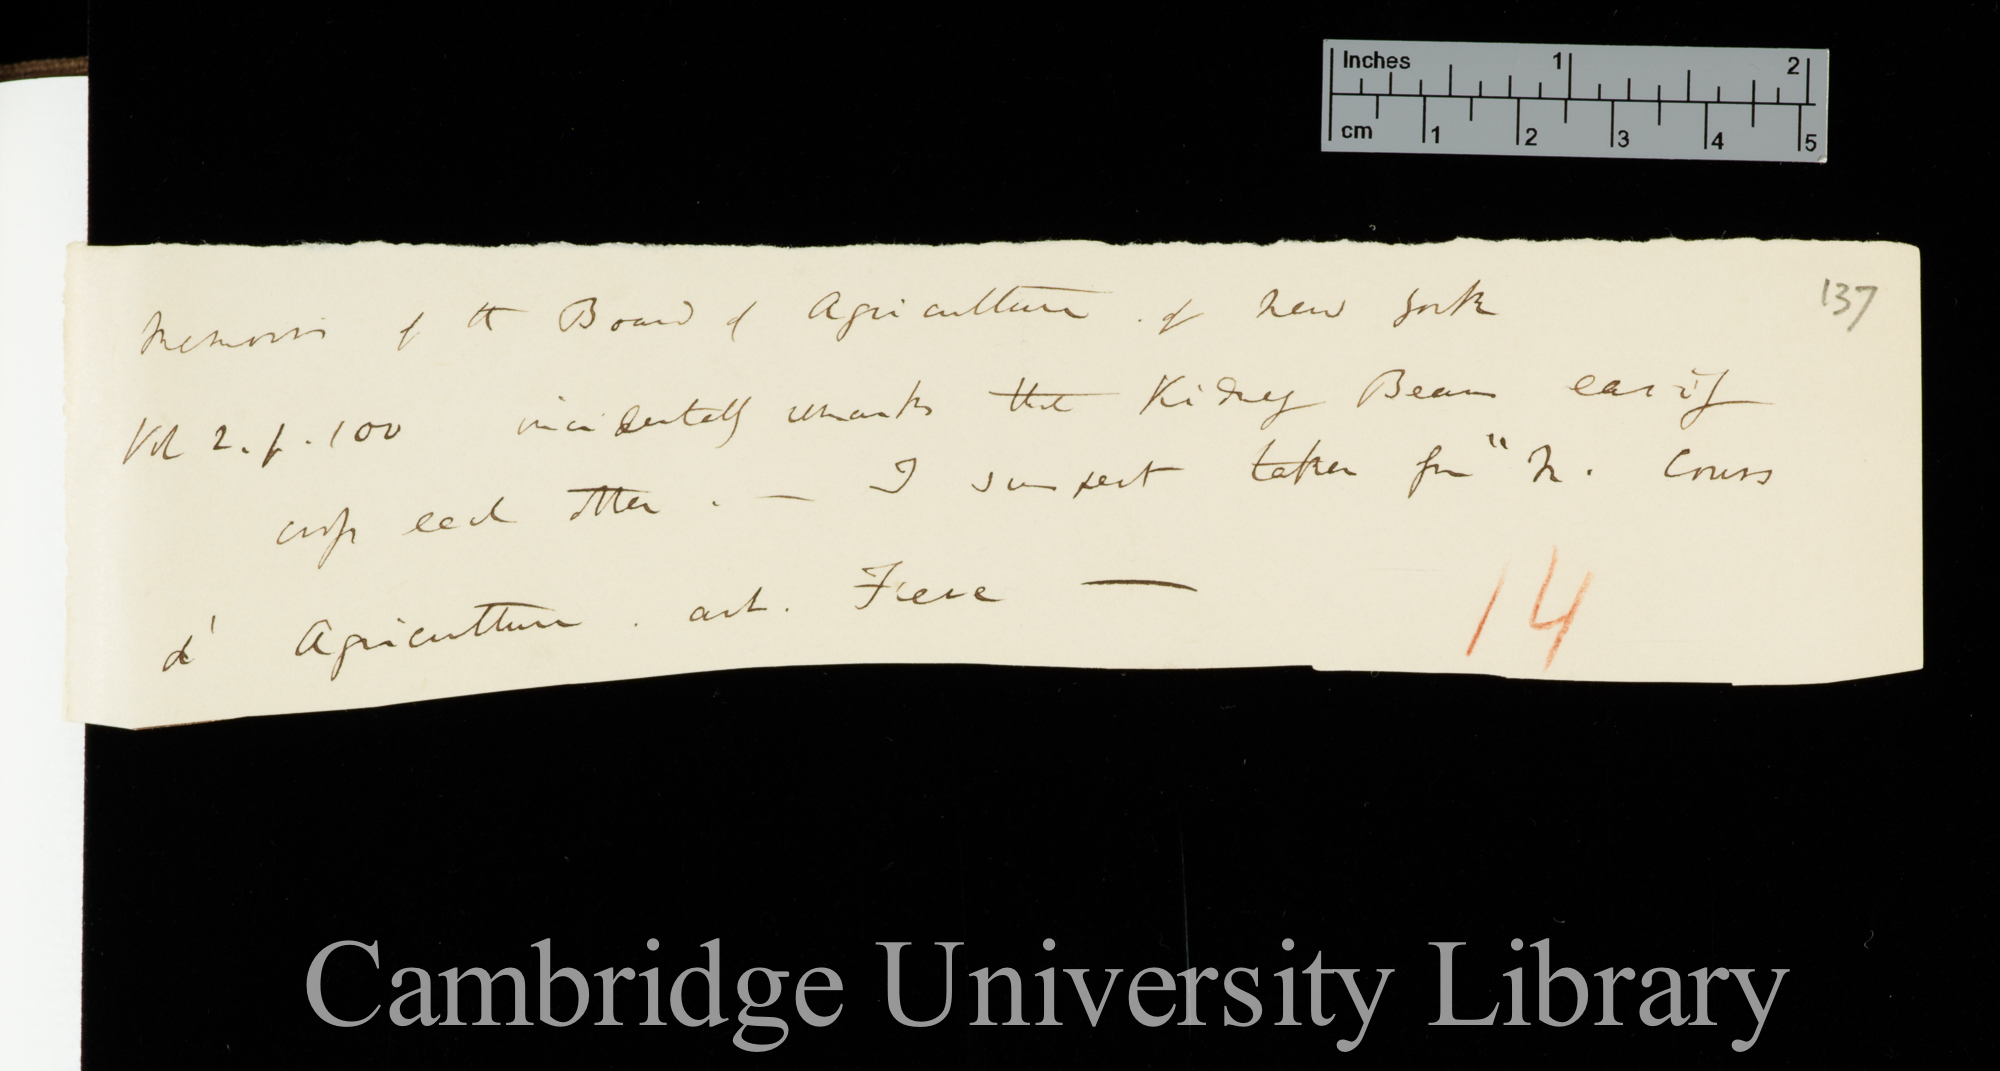 Inches 1 2
cm 1 2 3 4 5
137
Memoirs of the Board of Agriculture of New York
Vol 2. p. 100 incidentally remarks that Kidney Beans easily
cross each other. — I suspect taken from "N. Cours
d' Agriculture. art. Feve —
14
Cambridge University Library